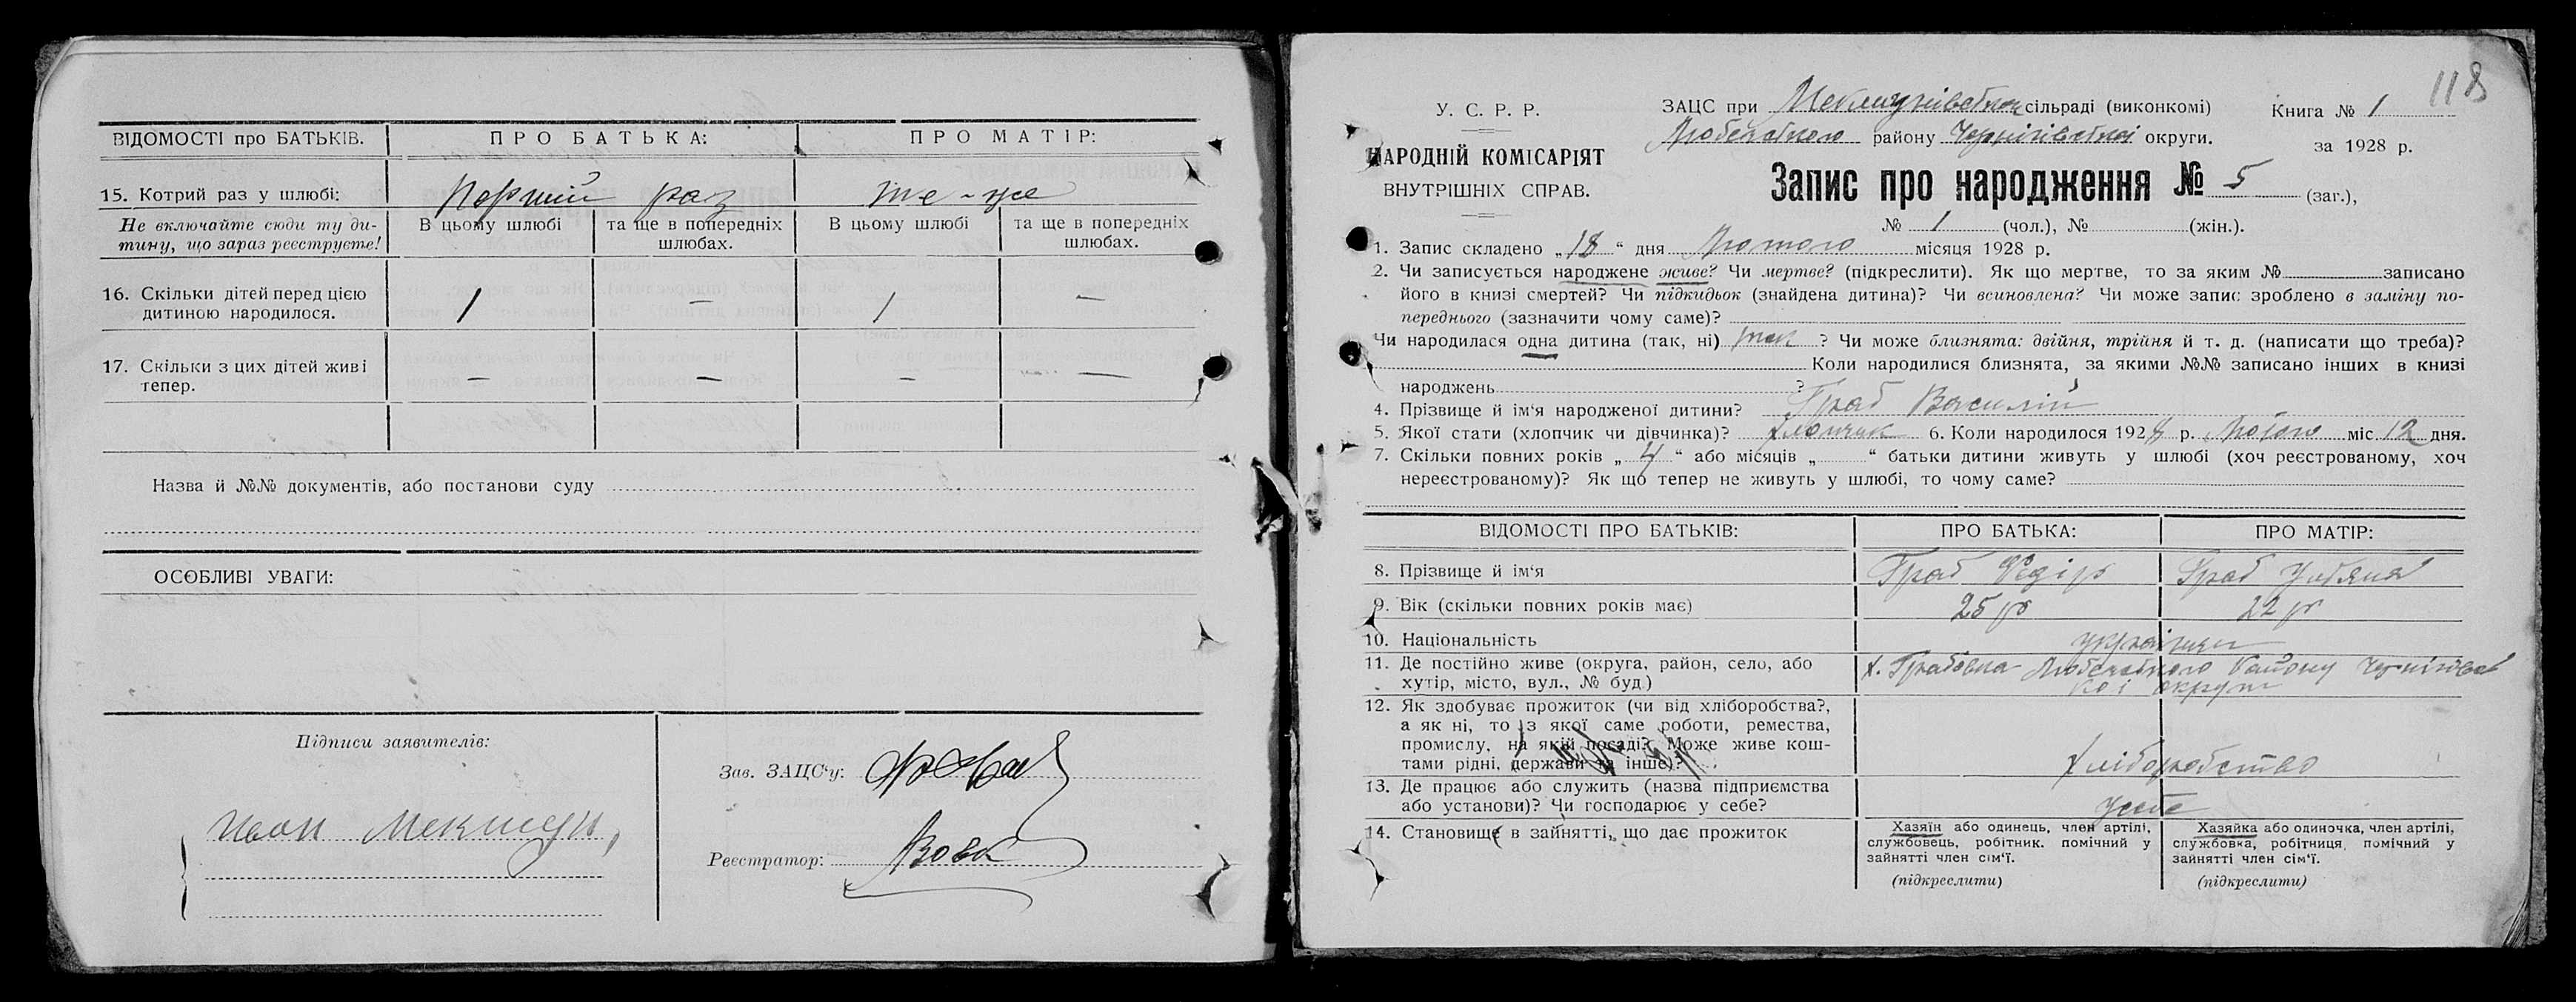 ВІДОМОСТІ про БАТЬКІВ. ПРО БАТЬКА: ПРО МАТІР:
15. Котрий раз у шлюбі: Перший раз те-же
Не включайте сюди ту ди-
тину, що зараз реєструєте!
В цьому шлюбі та ще в попередніх
шлюбах. В цьому шлюбі та ще в попередніх
шлюбах.
16. Скільки дітей перед цією
дитиною народилося. 1 — 1 —
17. Скільки з цих дітей живі
тепер. — — — —
Назва й №№ документів, або постанови суду
ОСОБЛИВІ УВАГИ:
Підписи заявителів:
Иван Мекшун,
Зав. ЗАЦС'у:
Реєстратор: Вовк
118
У. С. Р. Р.
НАРОДНІЙ КОМІСАРІЯТ
ВНУТРІШНІХ СПРАВ.
ЗАЦС при сільраді (виконкомі)
Любечського району Чернігівської округи.
Книга № 1
за 1928 р.
Запис про народження № 5 (заг.),
№ 1 (чол.), № (жін.).
1. Запис складено „18“ дня Лютого місяця 1928 р.
2. Чи записується народжене живе? Чи мертве? (підкреслити). Як що мертве, то за яким № записано
його в книзі смертей? Чи підкидьок (знайдена дитина)? Чи всиновлена? Чи може запис зроблено в заміну по-
переднього (зазначити чому саме)?
Чи народилася одна дитина (так, ні) так ? Чи може близнята: двійня, трійня й т. д. (написати що треба)?
Коли народилися близнята, за якими №№ записано інших в книзі
народжень ?
4. Прізвище й ім'я народженої дитини? Граб Василій
5. Якої стати (хлопчик чи дівчинка)? Хлопчик 6. Коли народилося 1928 р. Лютого міс. 12 дня.
7. Скільки повних років „4“ або місяців „ “ батьки дитини живуть у шлюбі (хоч реєстрованому, хоч
нереєстрованому)? Як що тепер не живуть у шлюбі, то чому саме?
ВІДОМОСТІ ПРО БАТЬКІВ: ПРО БАТЬКА: ПРО МАТІР:
8. Прізвище й ім'я Граб Федір Граб Уляна
9. Вік (скільки повних років має) 25 р 22 р
10. Національність українці
11. Де постійно живе (округа, район, село, або
хутір, місто, вул., № буд.) х. Грабовка Любечського Району Чернігівсь
кої округи
12. Як здобуває прожиток (чи від хліборобства?,
а як ні, то з якої саме роботи, ремества,
промислу, на якій посаді? Може живе кош-
тами рідні, держави та інше)? Хліборобство
13. Де працює або служить (назва підприємства
або установи)? Чи господарює у себе? У себе
14. Становище в зайнятті, що дає прожиток
Хазяїн або одинець, член артілі,
службовець, робітник, помічний у
зайнятті член сім'ї.
(підкреслити)
Хазяйка або одиночка, член артілі,
службовка, робітниця, помічний у
зайнятті член сім'ї.
(підкреслити)